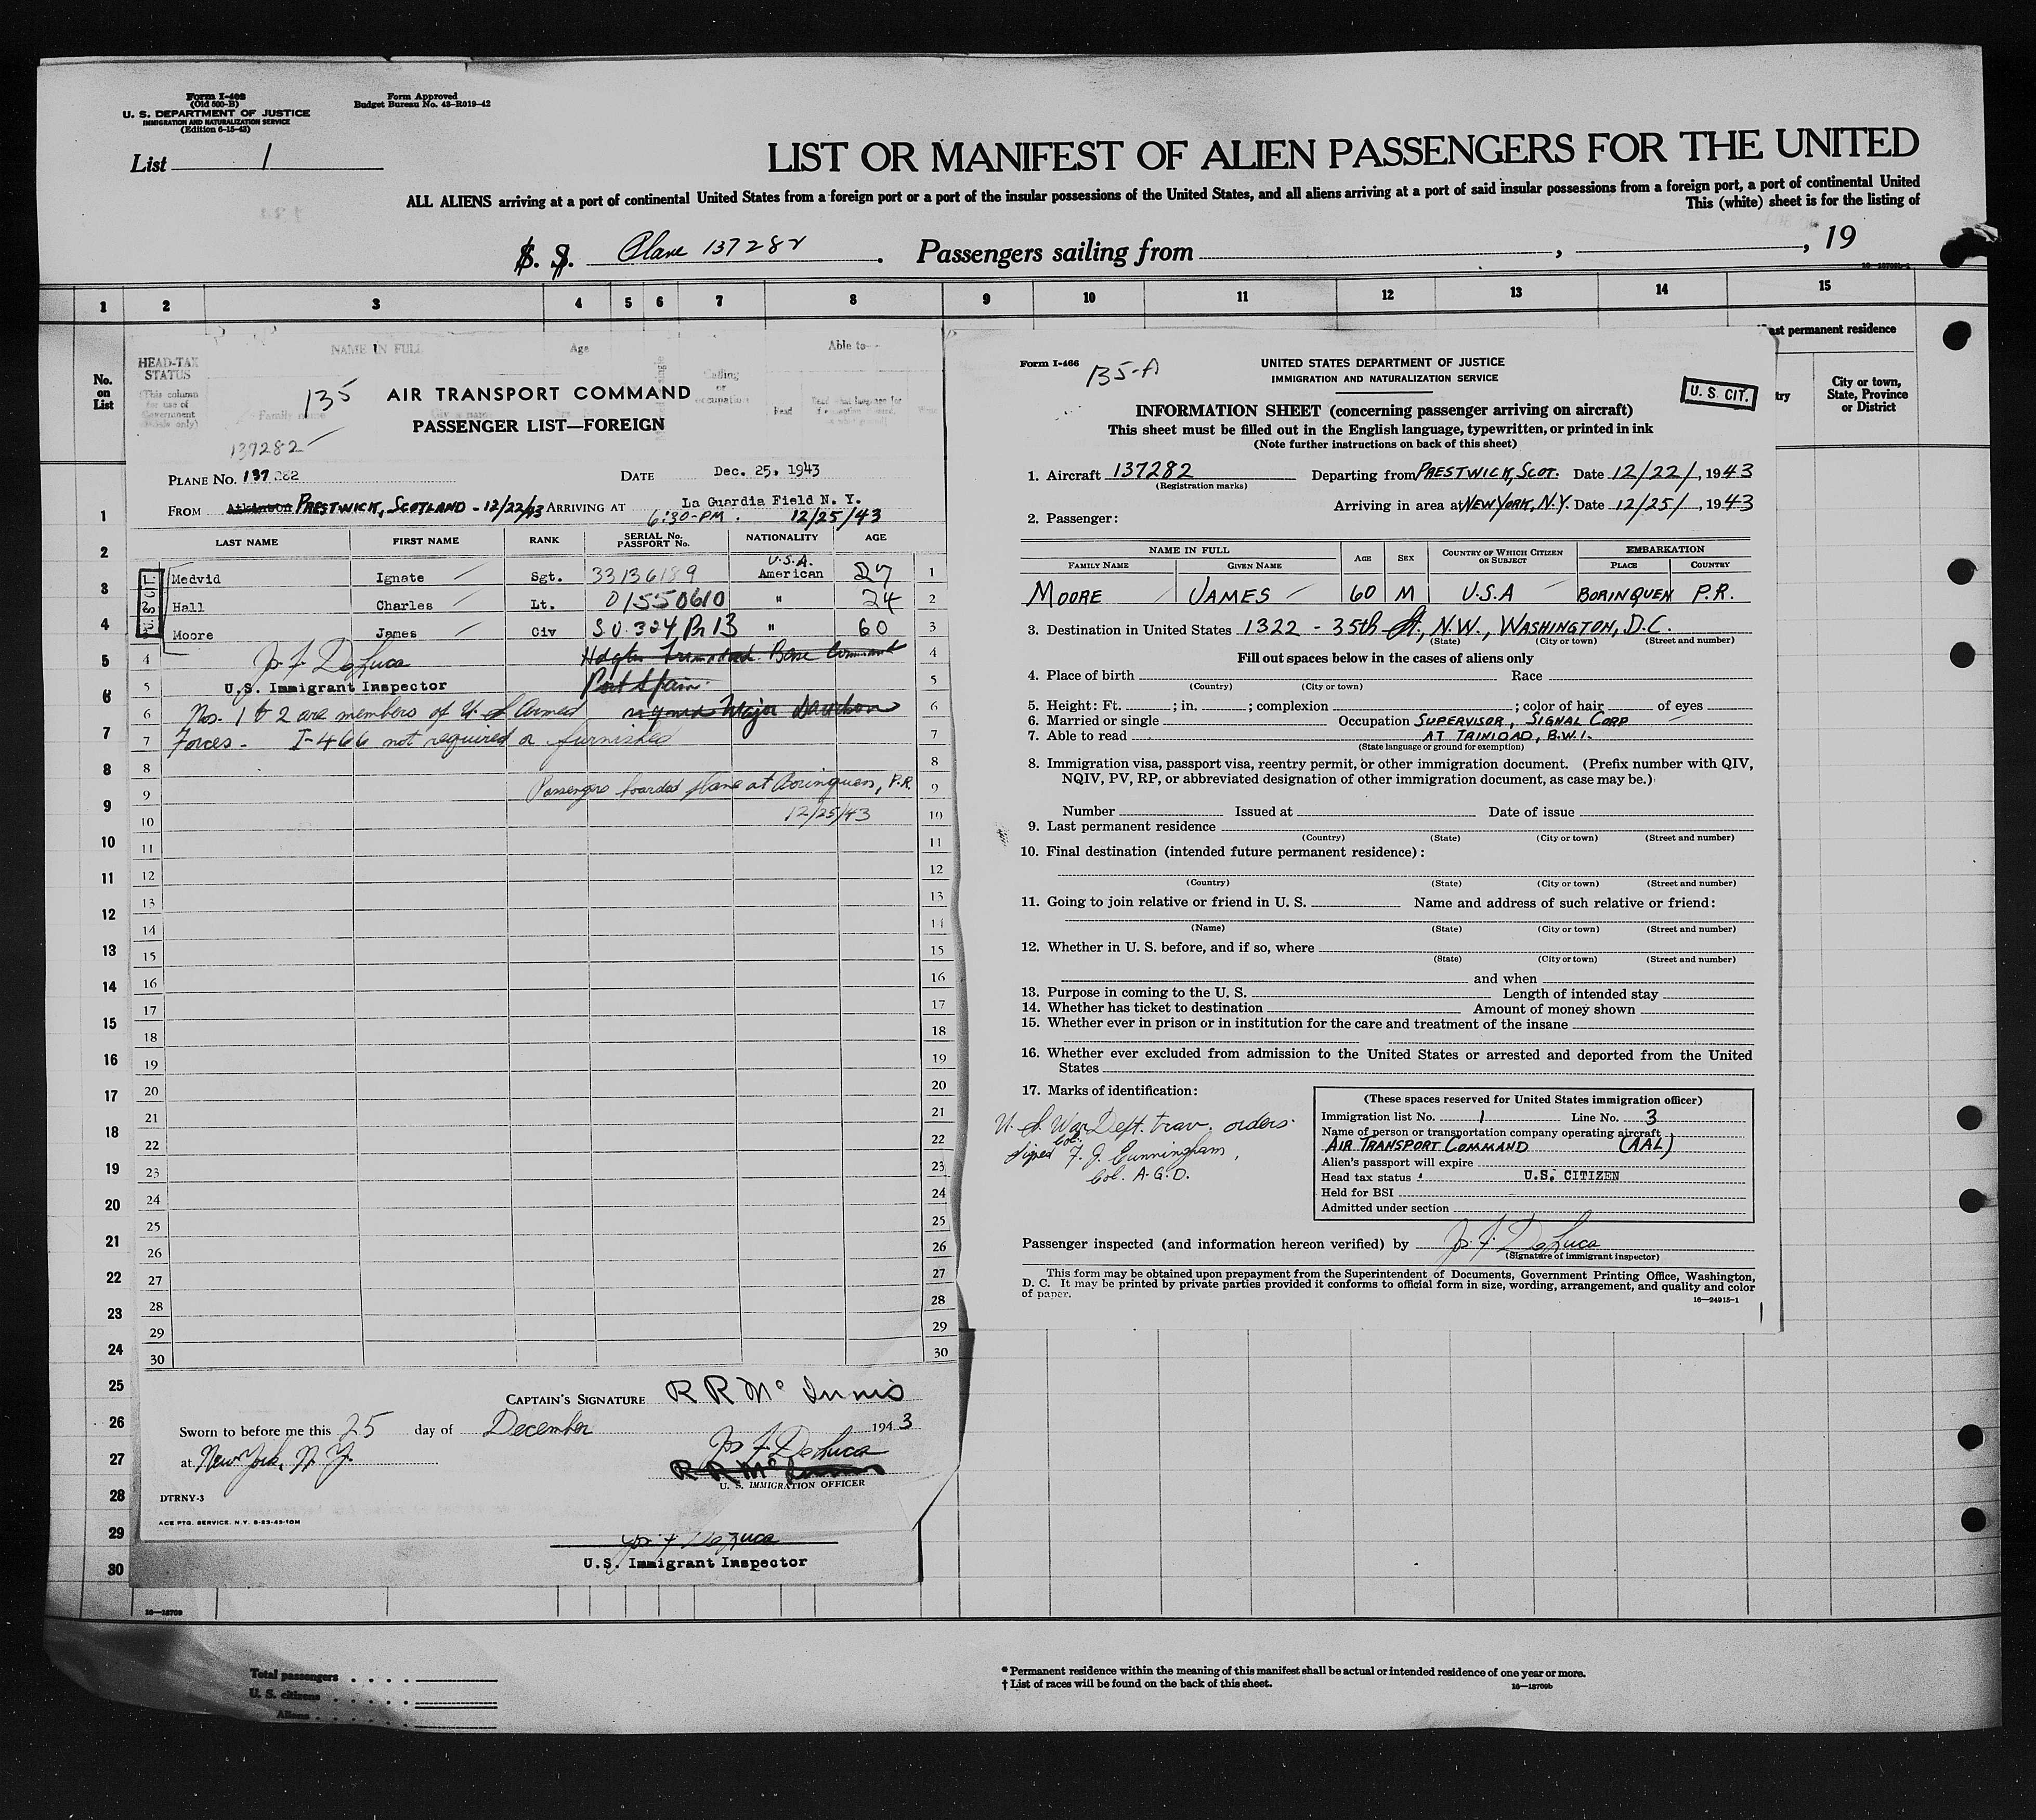 Form I-408
(Old 500-B)
U. S. DEPARTMENT OF JUSTICE
IMMIGRATION AND NATURALIZATION SERVICE
(Edition 6-15-43)
Form Approved
Budget Bureau No. 43-R019-42
List 1
LIST OR MANIFEST OF ALIEN PASSENGERS FOR THE UNITED
ALL ALIENS arriving at a port of continental United States from a foreign port or a port of the insular possessions of the United States, and all aliens arriving at a port of said insular possessions from a foreign port, a port of continental United
This (white) sheet is for the listing of
S. S. Plane 137282. Passengers sailing from , , 19
1 2 3 4 5 6 7 8 9 10 11 12 13 14 15
No. on List
HEAD-TAX STATUS
(This column for use of Government officials only)
NAME IN FULL
Family name
Given name
Age
Calling or occupation
Able to—
Read
Last permanent residence
City or town, State, Province or District
135
AIR TRANSPORT COMMAND
PASSENGER LIST—FOREIGN
137282
PLANE NO. 137282 DATE Dec. 25, 1943
FROM Atkinson PRESTWICK, SCOTLAND - 12/22/43 ARRIVING AT La Guardia Field N. Y.
6:30-PM. 12/25/43
LAST NAME FIRST NAME RANK SERIAL No. PASSPORT No. NATIONALITY AGE
U.S. CIT.
Medvid Ignate Sgt. 33136189 U.S.A. American 27 1
Hall Charles Lt. 01550610 " 24 2
Moore James Civ S.O. 324, Pr 13 " 60 3
4 Jos. F. DeLuca Hdqtrs Trinidad Base Command 4
5 U.S. Immigrant Inspector Port Spain 5
6 Nos. 1 & 2 are members of U.S. Armed signed Major Davidson 6
7 Forces - I-466 not required or furnished 7
8 8
9 Passengers boarded plane at Borinquen, P.R. 9
10 12/25/43 10
11 11
12 12
13 13
14 14
15 15
16 16
17 17
18 18
19 19
20 20
21 21
22 22
23 23
24 24
25 25
26 26
27 27
28 28
29 29
30 30
CAPTAIN'S SIGNATURE R R McInnis
Sworn to before me this 25 day of December 1943
at New York, N.Y. Jos F. DeLuca
R R McInnis
U. S. IMMIGRATION OFFICER
DTRNY-3
ACE PTG. SERVICE. N.Y. 8-23-43-10M
Jos F DeLuca
U.S. Immigrant Inspector
1
2
3
4
5
6
7
8
9
10
11
12
13
14
15
16
17
18
19
20
21
22
23
24
25
26
27
28
29
30
16—18709
Total passengers
U. S. citizens
Aliens
Form I-466
135-A
UNITED STATES DEPARTMENT OF JUSTICE
IMMIGRATION AND NATURALIZATION SERVICE
U. S. CIT.
INFORMATION SHEET (concerning passenger arriving on aircraft)
This sheet must be filled out in the English language, typewritten, or printed in ink
(Note further instructions on back of this sheet)
1. Aircraft 137282 Departing from PRESTWICK, SCOT. Date 12/22/, 1943
(Registration marks)
Arriving in area at NEW YORK, N.Y. Date 12/25/, 1943
2. Passenger:
NAME IN FULL AGE SEX COUNTRY OF WHICH CITIZEN OR SUBJECT EMBARKATION
FAMILY NAME GIVEN NAME PLACE COUNTRY
MOORE JAMES 60 M U.S.A BORINQUEN P.R.
3. Destination in United States 1322 - 35th St., N.W., WASHINGTON, D.C.
(State) (City or town) (Street and number)
Fill out spaces below in the cases of aliens only
4. Place of birth Race
(Country) (City or town)
5. Height: Ft. ; in. ; complexion ; color of hair of eyes
6. Married or single Occupation SUPERVISOR, SIGNAL CORP
7. Able to read AT TRINIDAD, B.W.I.
(State language or ground for exemption)
8. Immigration visa, passport visa, reentry permit, or other immigration document. (Prefix number with QIV,
NQIV, PV, RP, or abbreviated designation of other immigration document, as case may be.)
Number Issued at Date of issue
9. Last permanent residence
(Country) (State) (City or town) (Street and number)
10. Final destination (intended future permanent residence):
(Country) (State) (City or town) (Street and number)
11. Going to join relative or friend in U. S. Name and address of such relative or friend:
(Name) (State) (City or town) (Street and number)
12. Whether in U. S. before, and if so, where
(State) (City or town) (Street and number)
and when
13. Purpose in coming to the U. S. Length of intended stay
14. Whether has ticket to destination Amount of money shown
15. Whether ever in prison or in institution for the care and treatment of the insane
16. Whether ever excluded from admission to the United States or arrested and deported from the United
States
17. Marks of identification:
U. S. War Dept. trav. orders.
signed Col. F. J. Cunningham,
Col. A.G.D.
(These spaces reserved for United States immigration officer)
Immigration list No. 1 Line No. 3
Name of person or transportation company operating aircraft
AIR TRANSPORT COMMAND (AAL)
Alien's passport will expire
Head tax status U.S. CITIZEN
Held for BSI
Admitted under section
Passenger inspected (and information hereon verified) by Jos. F. DeLuca
(Signature of immigrant inspector)
This form may be obtained upon prepayment from the Superintendent of Documents, Government Printing Office, Washington,
D. C. It may be printed by private parties provided it conforms to official form in size, wording, arrangement, and quality and color
of paper.
16—24915-1
* Permanent residence within the meaning of this manifest shall be actual or intended residence of one year or more.
† List of races will be found on the back of this sheet.
16—18709b